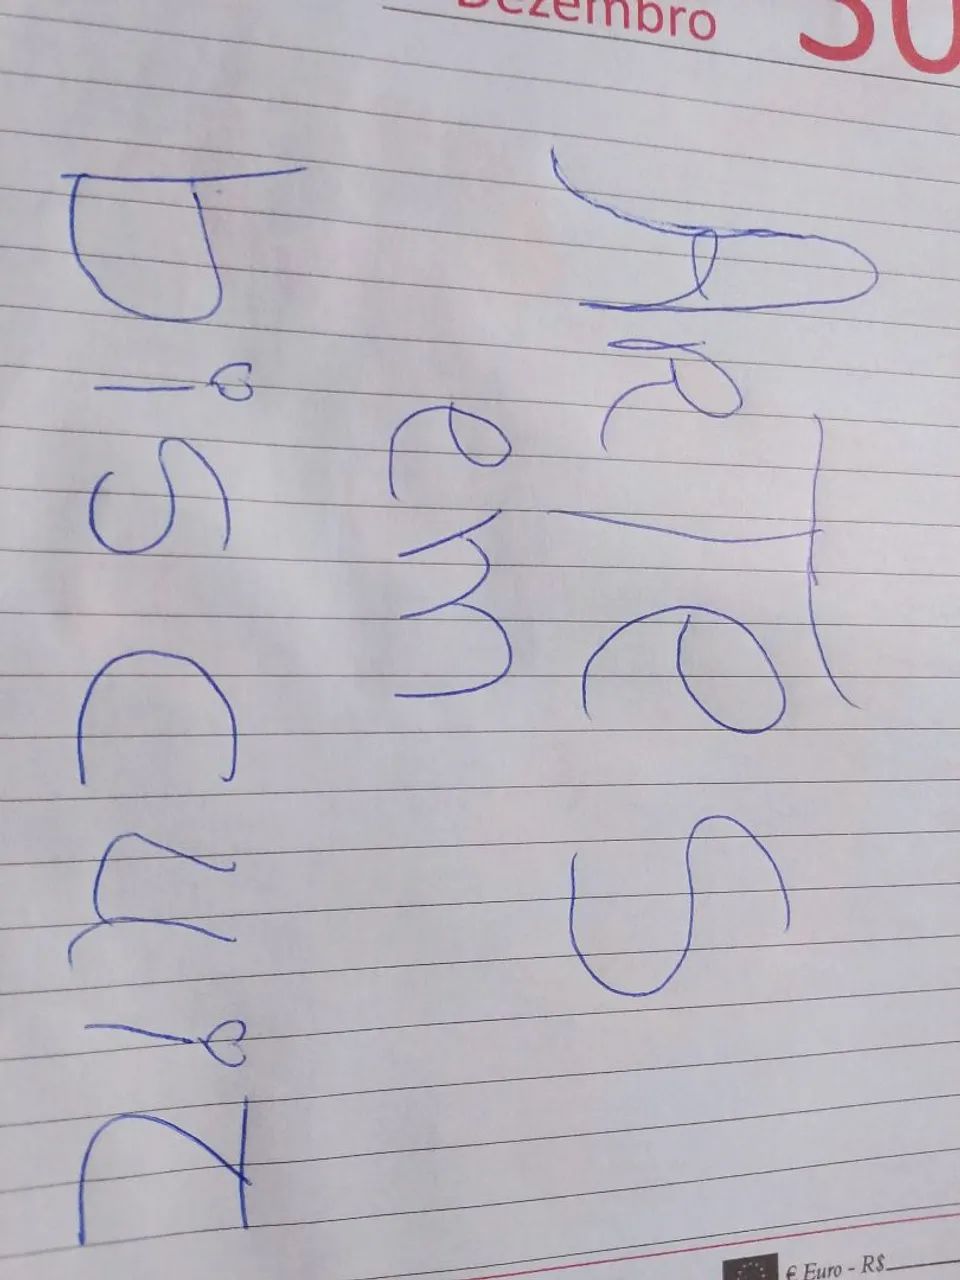 ARTes
em
biscuit
Dezembro 30
€ Euro - R$